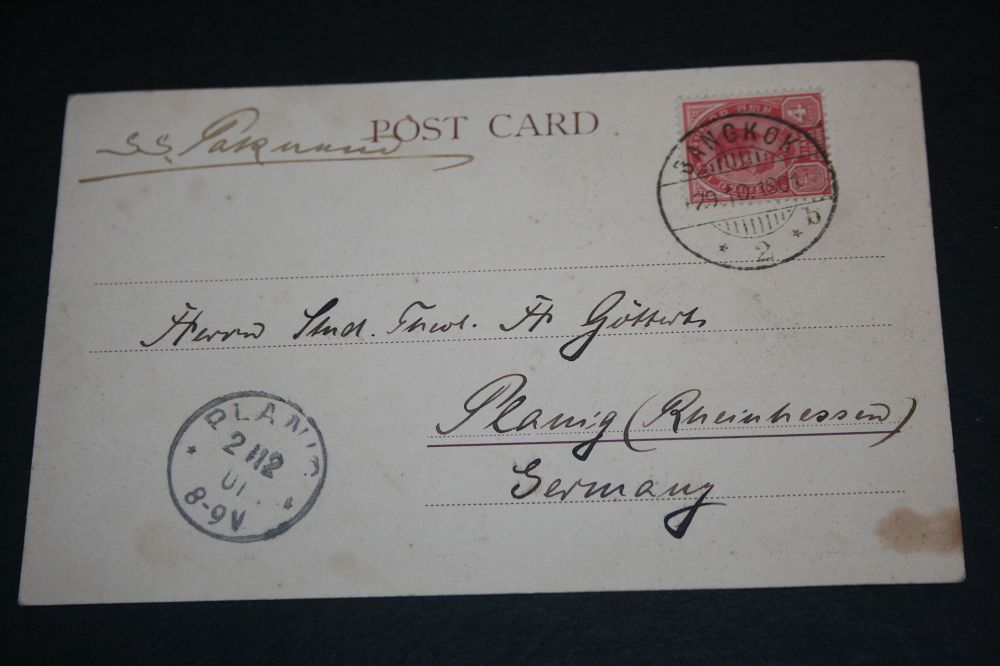 POST CARD
S.S. Paknam
4
BANGKOK
29.10.1901
* 2 * b
Herrn Stud. Theol. Fr Götterts
Planig (Rheinhessen)
Germany
PLANIG
2 112
01
8-9V
* *